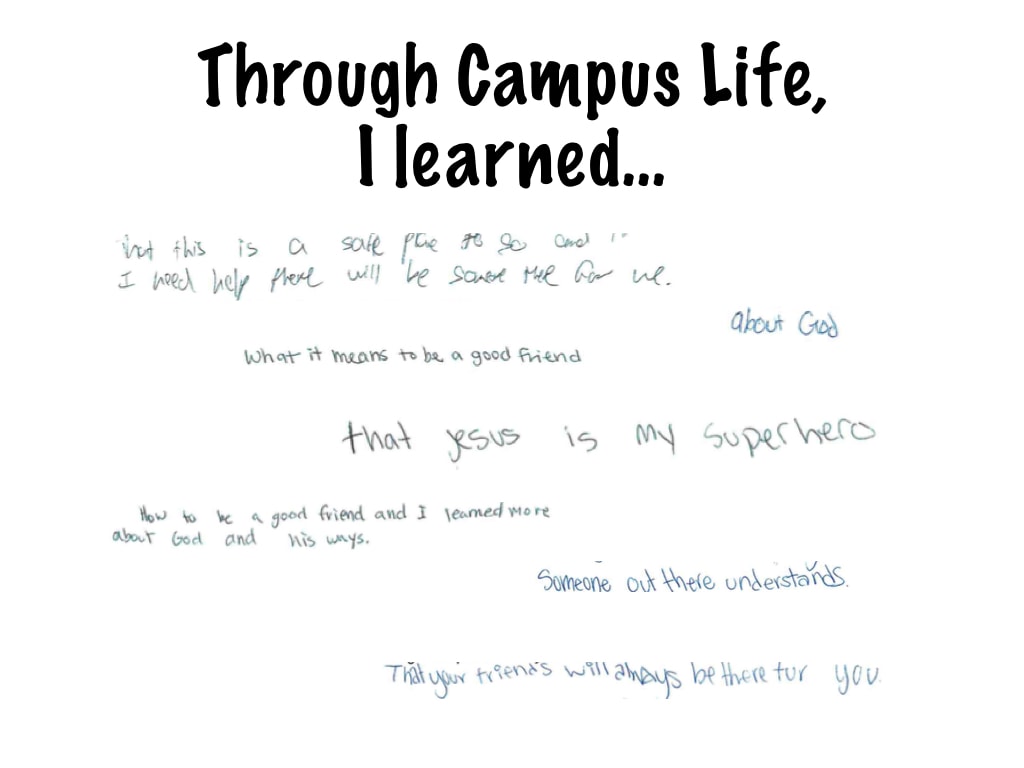 Through Campus Life,
I learned...
that this is a safe place to go and if
I need help there will be some there for me.
about God
What it means to be a good friend
that jesus is my superhero
How to be a good friend and I learned more
about God and his ways.
Someone out there understands.
That your friends will always be there for you.